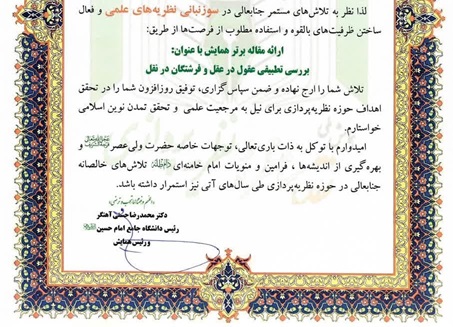 لذا نظر به تلاش‌های مستمر جنابعالی در سوزنبانی نظریه‌های علمی و فعال
ساختن ظرفیت‌های بالقوه و استفاده مطلوب از فرصت‌ها از طریق:
ارائه مقاله برتر همایش با عنوان:
بررسی تطبیقی عقول در عقل و فرشتگان در نقل
تلاش شما را ارج نهاده و ضمن سپاس‌گزاری، توفیق روزافزون شما را در تحقق
اهداف حوزه نظریه‌پردازی برای نیل به مرجعیت علمی و تحقق تمدن نوین اسلامی
خواستارم.
امیدوارم با توکل به ذات باری‌تعالی، توجهات خاصه حضرت ولی‌عصر و
بهره‌گیری از اندیشه‌ها، فرامین و منویات امام خامنه‌ای تلاش‌های خالصانه
جنابعالی در حوزه نظریه‌پردازی طی سال‌های آتی نیز استمرار داشته باشد.
دکتر محمدرضا حسنی آهنگر
رئیس دانشگاه جامع امام حسین
و رئیس همایش